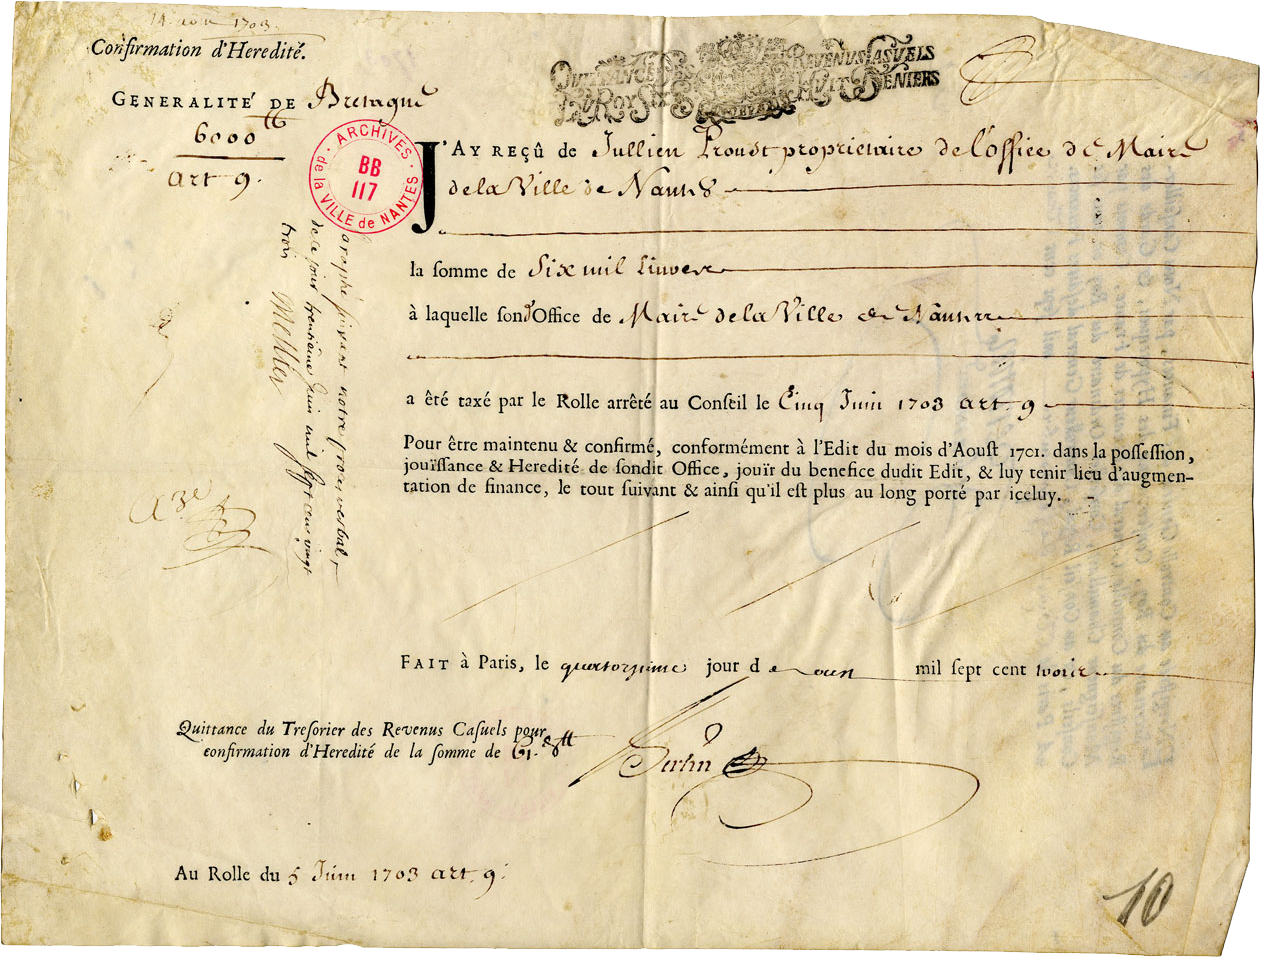 14 aoust 1703
Confirmation d'Heredité.
GENERALITÉ DE Bretagne
6000 ₶
art 9.
QUITTANCE DES REVENUS CASUELS
DU ROY SIX HUIT DENIERS
ARCHIVES
de la VILLE de NANTES
BB
117
J'AY REÇÛ DE Jullien Proust proprietaire de l'office de Maire
de la Ville de Nantes
la somme de Six mil Livres
à laquelle sond Office de Maire de la Ville de Nantes
a été taxé par le Rolle arrêté au Conseil le Cinq Juin 1703 art. 9
Pour être maintenu & confirmé, conformément à l'Edit du mois d'Aoust 1701. dans la possession,
jouïssance & Heredité de sondit Office, jouïr du benefice dudit Edit, & luy tenir lieu d'augmen-
tation de finance, le tout suivant & ainsi qu'il est plus au long porté par iceluy.
paraphé suivant notre procez verbal,
de ce jour trentième juin mil sept cent vingt
trois Mellier
FAIT à Paris, le quatorzieme jour d aoust mil sept cent trois
Quittance du Tresorier des Revenus Casuels pour
confirmation d'Heredité de la somme de
Bertin
Au Rolle du 5 Juin 1703 art. 9.
10